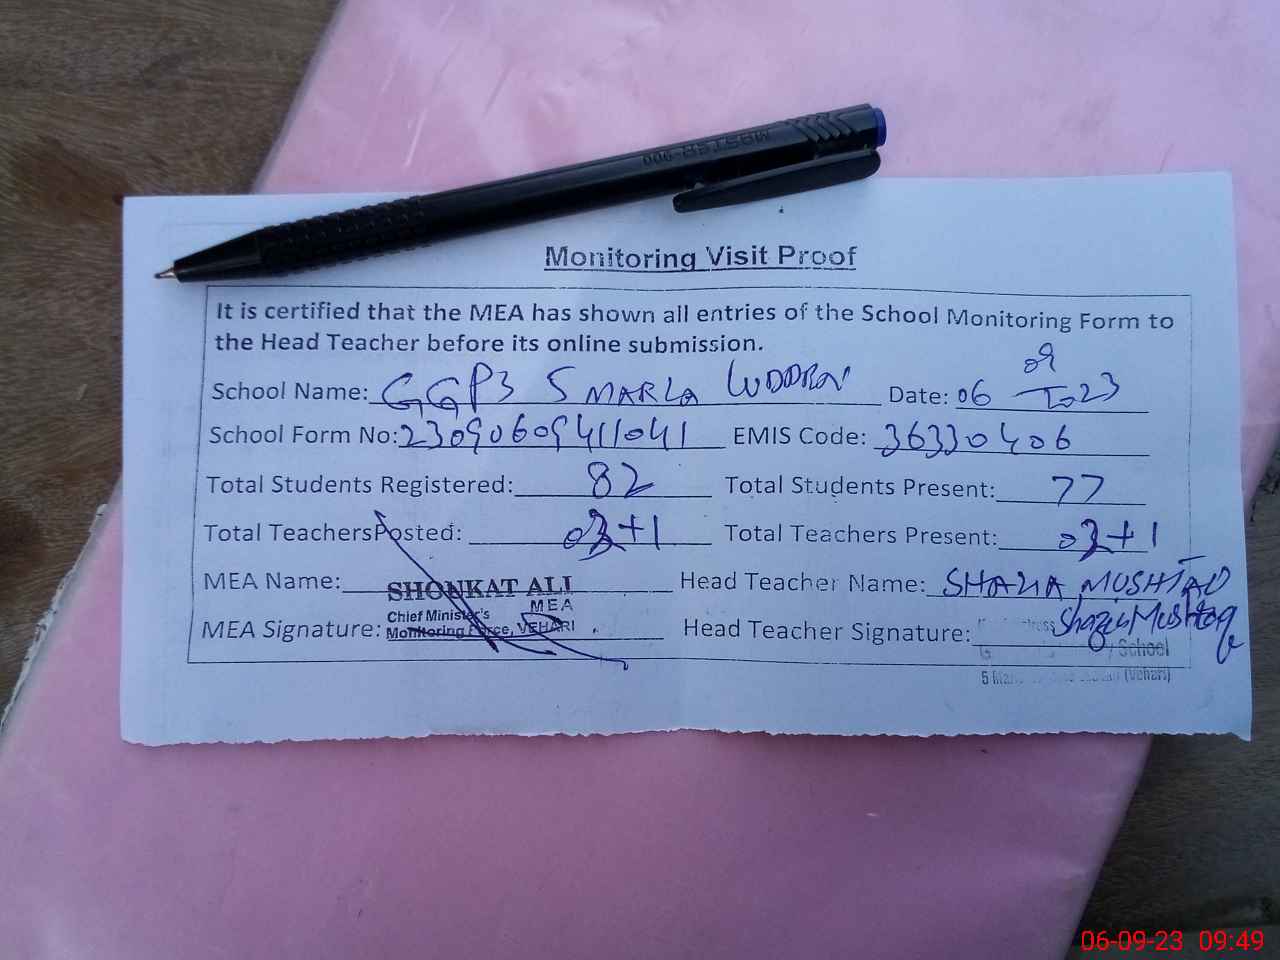 Monitoring Visit Proof
It is certified that the MEA has shown all entries of the School Monitoring Form to
the Head Teacher before its online submission.
School Name: GGPS 5 MARLA LUDDEN Date: 06/09/2023
School Form No: 23090609411041 EMIS Code: 36330406
Total Students Registered: 82 Total Students Present: 77
Total Teachers Posted: 03+1 Total Teachers Present: 03+1
MEA Name: SHONKAT ALI Head Teacher Name: SHAZIA MUSHTAQ
Chief Minister's MEA
MEA Signature: Monitoring Force, VEHARI Head Teacher Signature: Shazia Mushtaq
School
5 (Vehari)
06-09-23 09:49